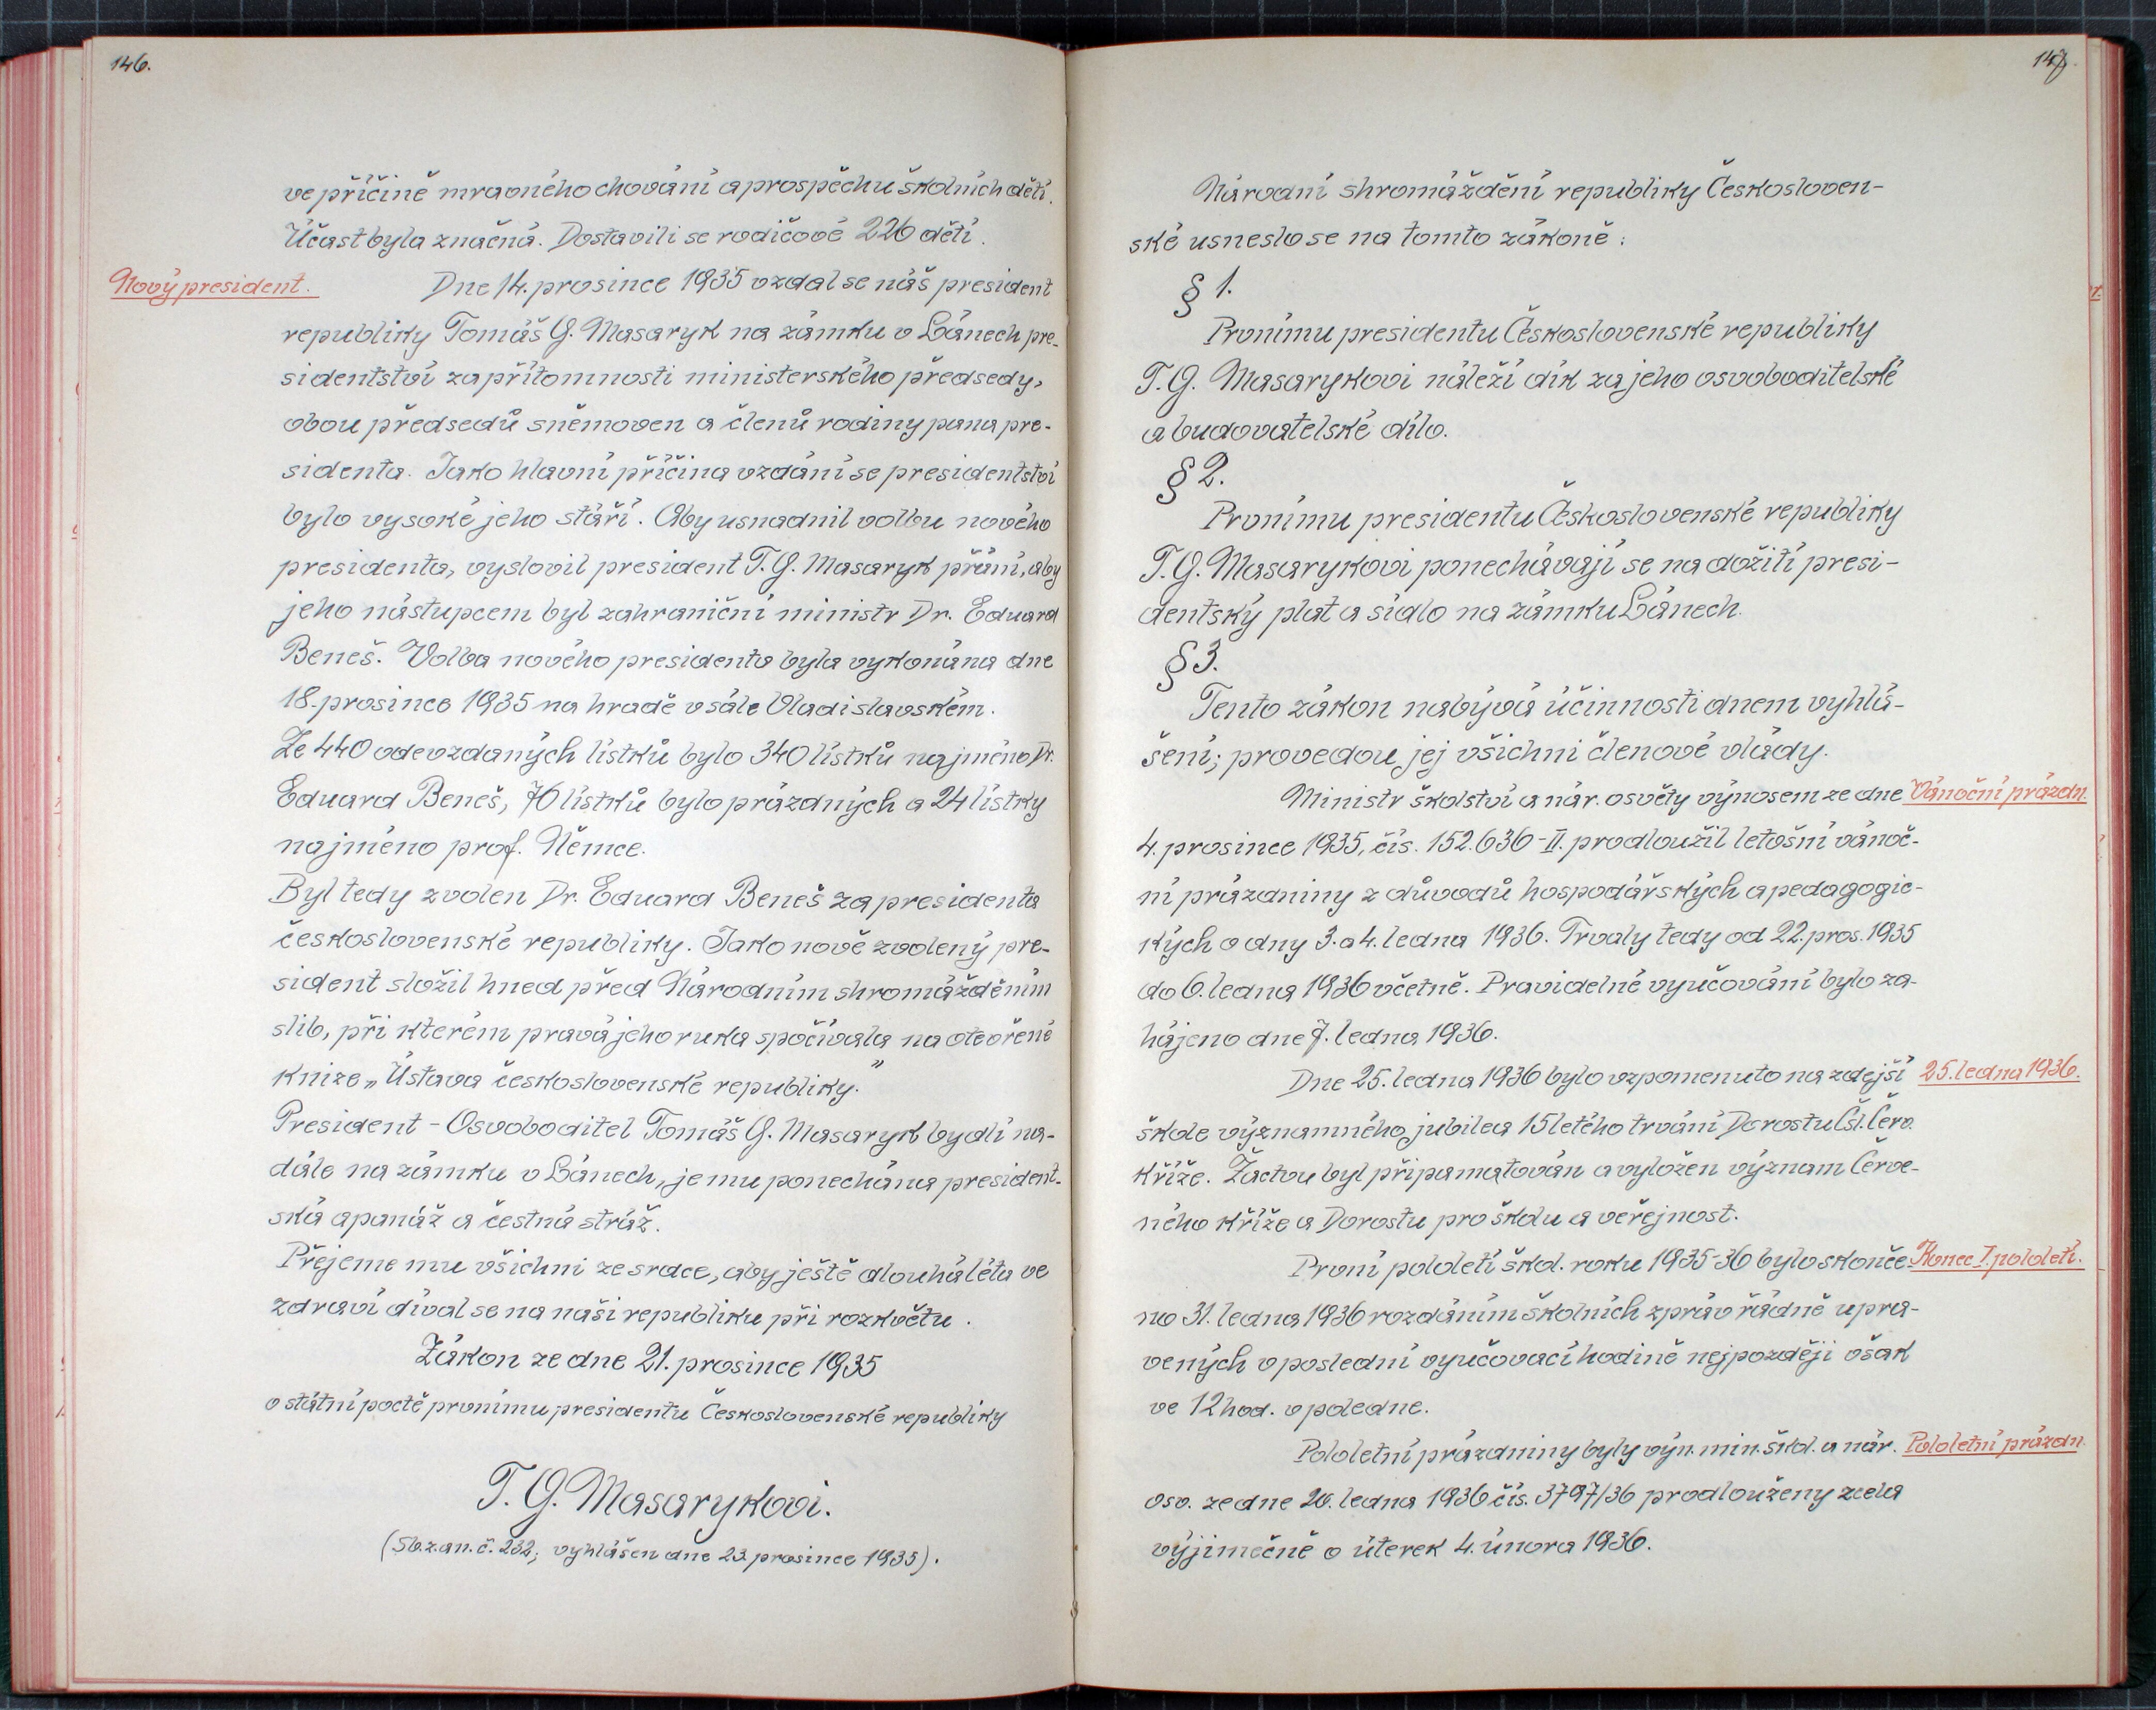 146.
ve příčině mravného chování a prospěchu školních dětí.
Účast byla značná. Dostavili se rodičové 226 dětí.
Nový president.
Dne 14. prosince 1935 vzdal se náš president
republiky Tomáš G. Masaryk na zámku v Lánech pre-
sidentství za přítomnosti ministerského předsedy,
obou předsedů sněmoven a členů rodiny pana pre-
sidenta. Jako hlavní příčina vzdání se presidentství
bylo vysoké jeho stáří. Aby usnadnil volbu nového
presidenta, vyslovil president T. G. Masaryk přání, aby
jeho nástupcem byl zahraniční ministr Dr. Eduard
Beneš. Volba nového presidenta byla vykonána dne
18. prosince 1935 na hradě v sále Vladislavském.
Ze 440 odevzdaných lístků bylo 340 lístků na jméno Dr.
Eduard Beneš, 76 lístků bylo prázdných a 24 lístky
na jméno prof. Němce.
Byl tedy zvolen Dr. Eduard Beneš za presidenta
československé republiky. Jako nově zvolený pre-
sident složil hned před Národním shromážděním
slib, při kterém pravá jeho ruka spočívala na otevřené
knize „Ústava československé republiky.”
President - Osvoboditel Tomáš G. Masaryk bydlí na-
dále na zámku v Lánech, je mu ponechána president-
ská apanáž a čestná stráž.
Přejeme mu všichni ze srdce, aby ještě dlouhá léta ve
zdraví díval se na naši republiku při rozkvětu.
Zákon ze dne 21. prosince 1935
o státní poctě prvnímu presidentu Československé republiky
T. G. Masarykovi.
(Sb. z. a n. č. 232; vyhlášen dne 23. prosince 1935).
147.
Národní shromáždění republiky Českosloven-
ské usneslo se na tomto zákoně:
§ 1.
Prvnímu presidentu Československé republiky
T. G. Masarykovi náleží dík za jeho osvoboditelské
a budovatelské dílo.
§ 2.
Prvnímu presidentu Československé republiky
T. G. Masarykovi ponechávají se na dožití presi-
dentský plat a sídlo na zámku Lánech.
§ 3.
Tento zákon nabývá účinnosti dnem vyhlá-
šení; provedou jej všichni členové vlády.
Ministr školství a nár. osvěty výnosem ze dne
Vánoční prázdn.
4. prosince 1935, čís. 152.636-II. prodloužil letošní vánoč-
ní prázdniny z důvodů hospodářských a pedagogic-
kých o dny 3. a 4. ledna 1936. Trvaly tedy od 22. pros. 1935
do 6. ledna 1936 včetně. Pravidelné vyučování bylo za-
hájeno dne 7. ledna 1936.
Dne 25. ledna 1936 bylo vzpomenuto na zdejší
25. ledna 1936.
škole významného jubilea 15letého trvání Dorostu Čsl. Červ.
kříže. Žactvu byl připamatován a vyložen význam Červe-
ného kříže a Dorostu pro školu a veřejnost.
První pololetí škol. roku 1935-36 bylo skonče-
Konec I. pololetí.
no 31. ledna 1936 rozdáním školních zpráv řádně upra-
vených v poslední vyučovací hodině nejpozději však
ve 12 hod. v poledne.
Pololetní prázdniny byly výn. min. škol. a nár.
Pololetní prázdn.
osv. ze dne 20. ledna 1936 čís. 3797/36 prodlouženy zcela
výjimečně o úterek 4. února 1936.